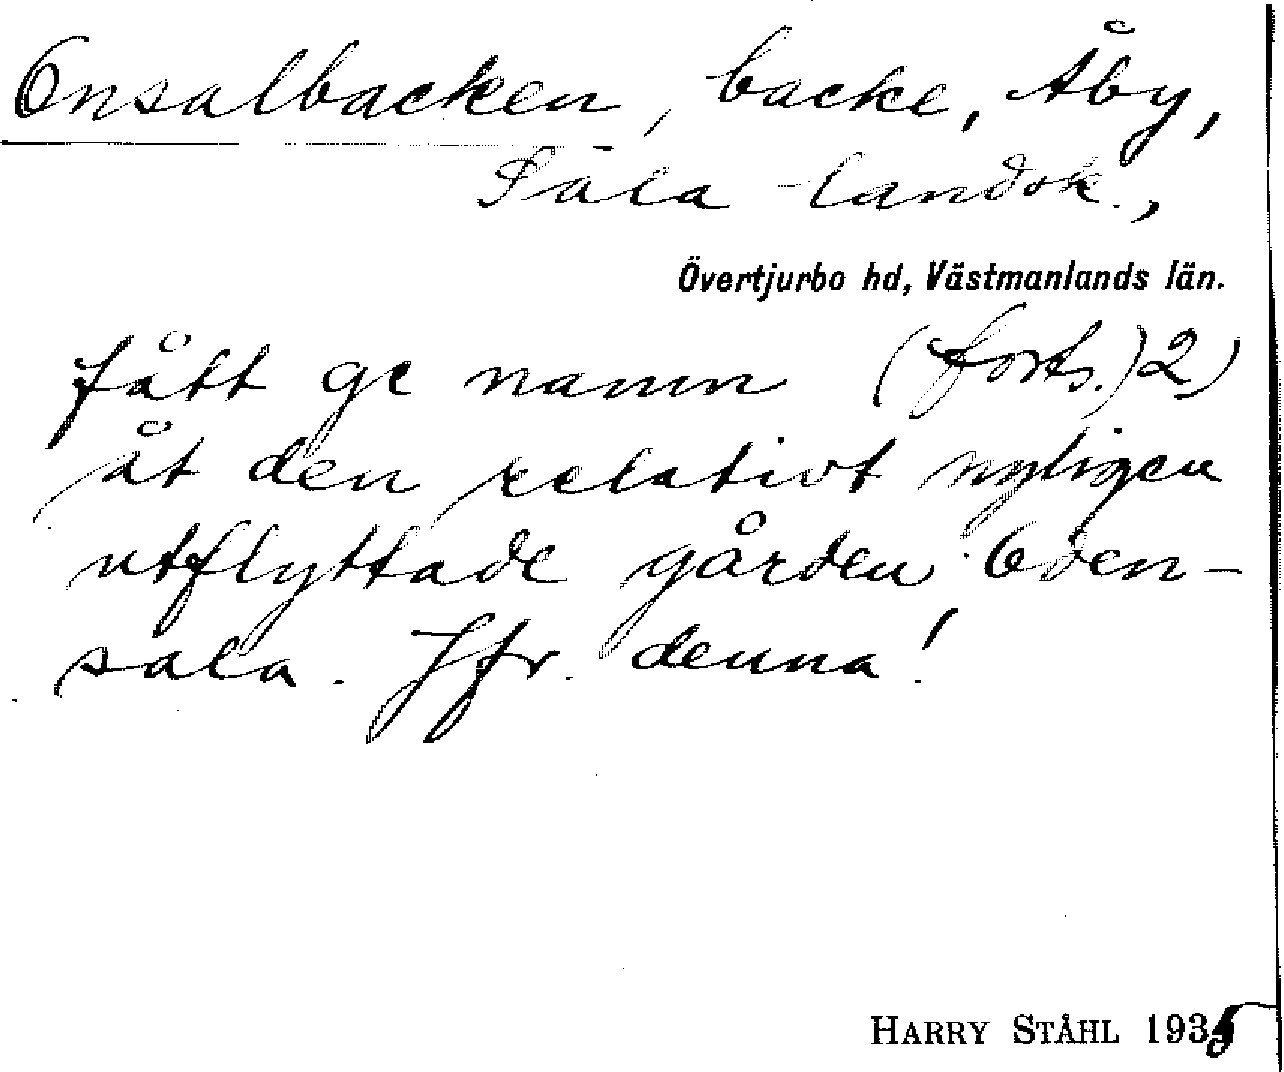 Onsalbacken, backe, Åby,
Sala landsk.,
Övertjurbo hd, Västmanlands län.
fått ge namn (forts.) 2)
åt den relativt nyligen
utflyttade gården Oden-
sala. Jfr. denna!
HARRY STÅHL 1935